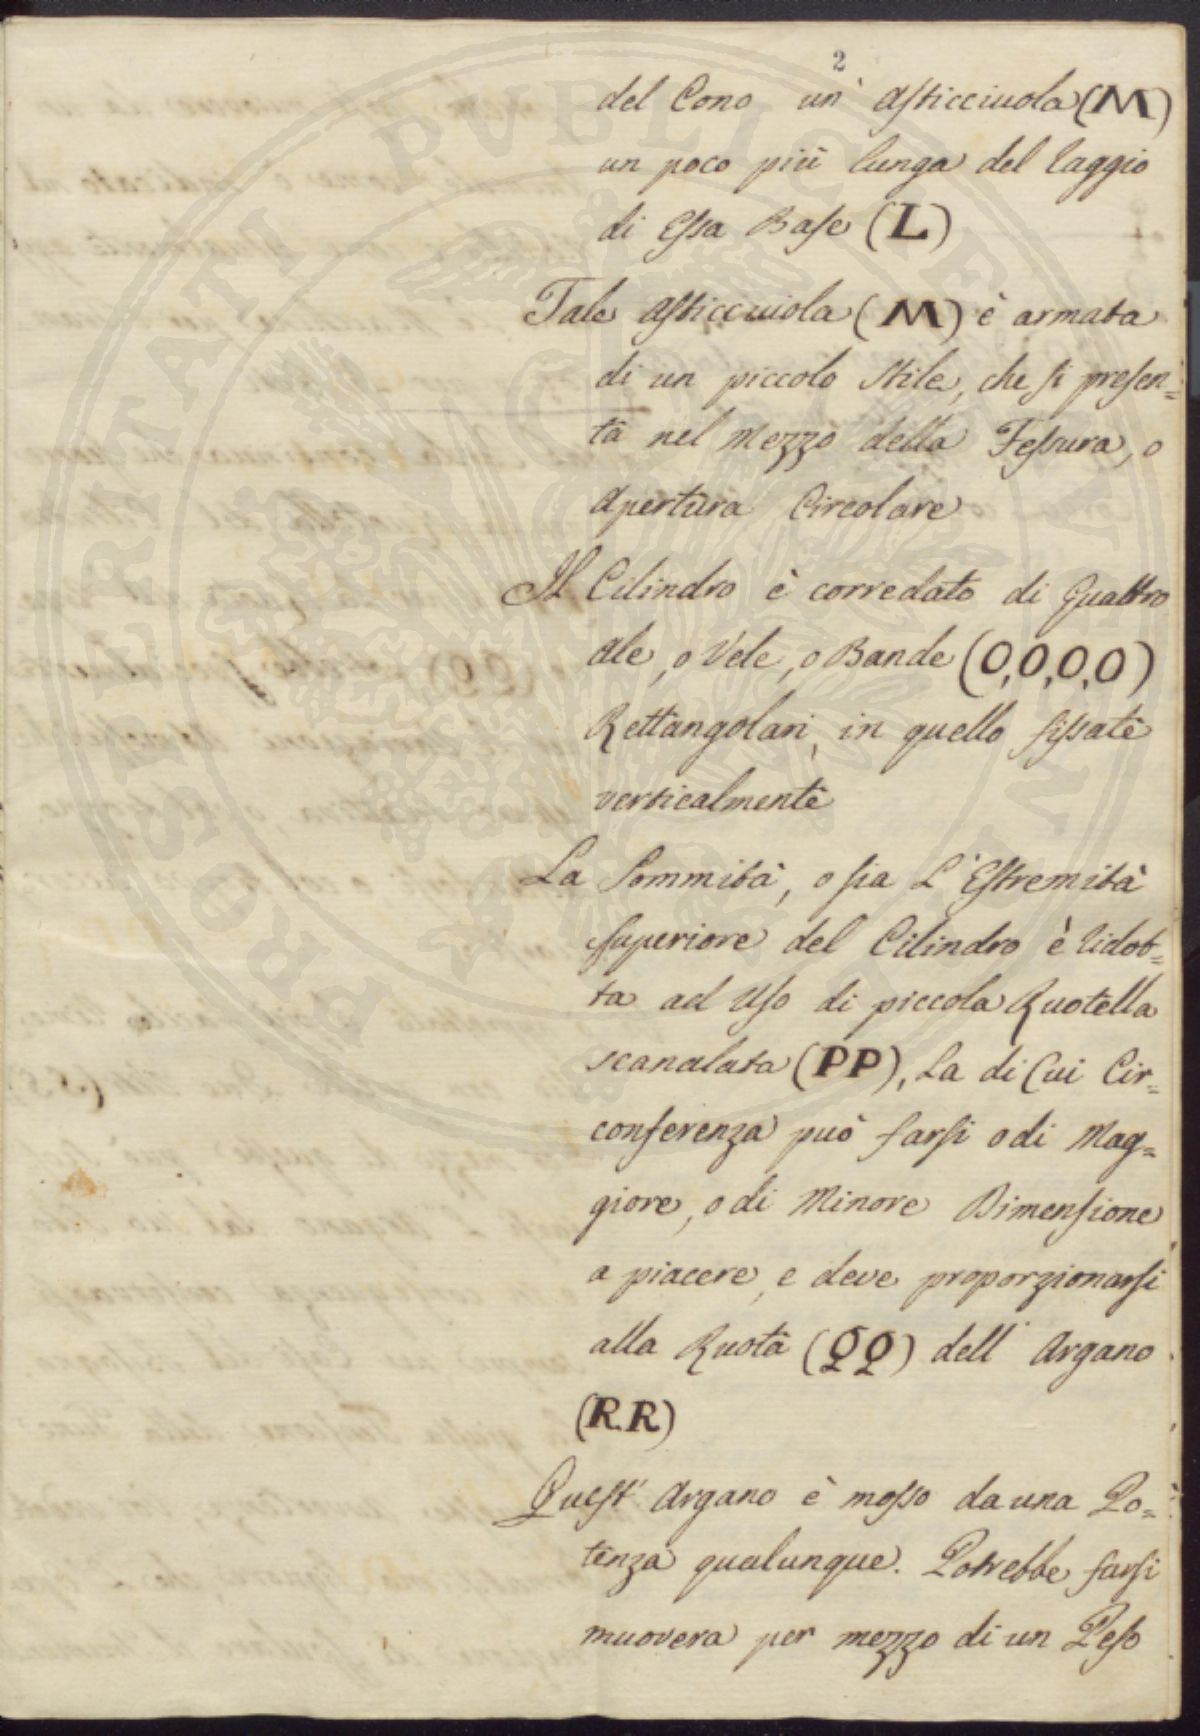 2
del Cono un' asticciuola (M)
un poco più lunga del raggio
di Essa Base (L)
Tale asticciuiola (M) è armata
di un piccolo stile, che si presen=
ta nel mezzo della Fessura, o
apertura Circolare
Il Cilindro è corredato di Quattro
ale, o Vele, o Bande (O,O,O,O)
Rettangolari, in quello fissate
verticalmente
La Sommità, o sia L'Estremità
superiore del Cilindro è ridot=
ta ad Uso di piccola Ruotella
scanalata (PP), La di Cui Cir=
conferenza può farsi o di Mag=
giore, o di Minore Dimensione
a piacere, e deve proporzionarsi
alla Ruota (QQ) dell' Argano
(R.R)
Quest' Argano è mosso da una Po=
tenza qualunque. Potrebbe farsi
muovera per mezzo di un Peso
PROSPERITATI PVBLICAE